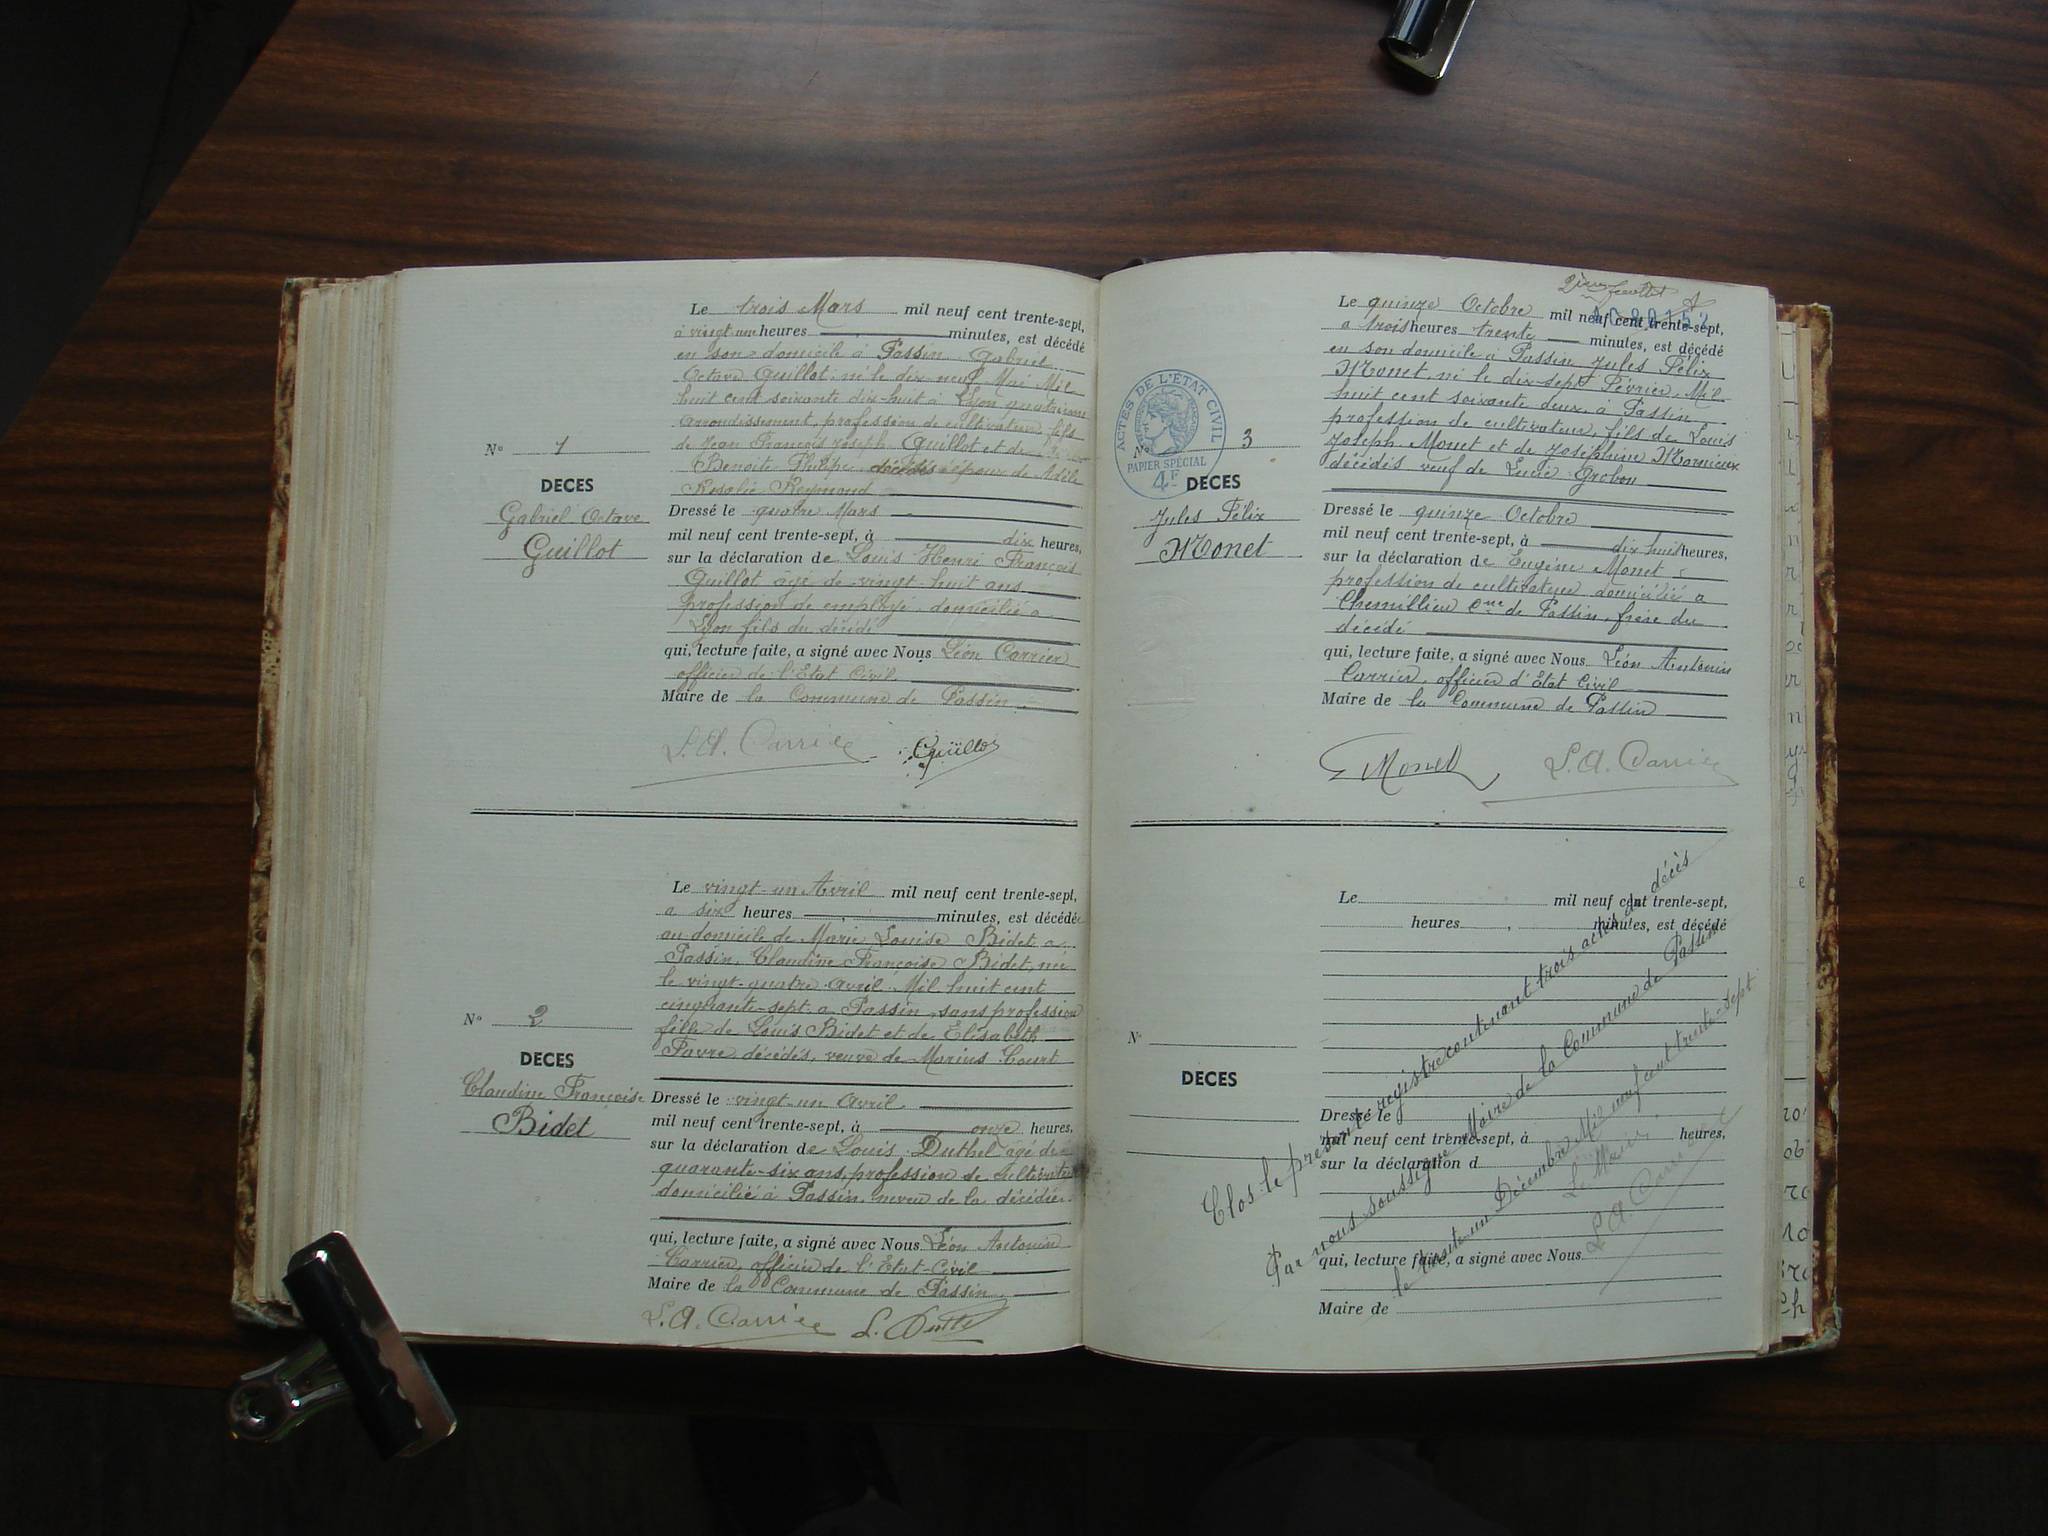 Le trois Mars mil neuf cent trente-sept,
à vingt une heures minutes, est décédé
en son domicile à Passin Gabriel
Octave Guillot, né le dix neuf Mai Mil
huit cent soixante dix-huit à Lyon quatrième
arrondissement, profession de cultivateur, fils
de Jean François Joseph Guillot et de
Benoite Philipe décédés époux de Adèle
Rosalie Reymond
N° 1
DECES
Gabriel Octave
Guillot
Dressé le quatre Mars
mil neuf cent trente-sept, à dix heures,
sur la déclaration de Louis Henri François
Guillot âgé de vingt huit ans
profession de employé domicilié a
Lyon fils du décédé
qui, lecture faite, a signé avec Nous Léon Carrier
officier de l'Etat Civil
Maire de la Commune de Passin
L.A. Carrier Guillot
Le vingt-un Avril mil neuf cent trente-sept,
a six heures minutes, est décédée
au domicile de Marie Louise Bidet a
Passin, Claudine Françoise Bidet, née
le vingt-quatre avril Mil huit cent
cinquante-sept a Passin, sans profession
fille de Louis Bidet et de Elisabeth
Favre décédés, veuve de Marius Court
N° 2
DECES
Claudine Françoise
Bidet
Dressé le vingt-un Avril
mil neuf cent trente-sept, à onze heures,
sur la déclaration de Louis Duthel âgé de
quarante-six ans, profession de cultivateur
domicilié à Passin, neveu de la décédée.
qui, lecture faite, a signé avec Nous Léon Antonin
Carrier, officier de l'Etat-Civil
Maire de la Commune de Passin
L.A. Carrier L. Duthel
2ième feuillet
Le quinze Octobre mil neuf cent trente-sept,
a trois heures trente minutes, est décédé
en son domicile à Passin Jules Félix
Monet, né le dix-sept Février Mil
huit cent soixante deux, à Passin
profession de cultivateur, fils de Louis
Joseph Monet et de Joséphine Mornieux
décédés veuf de Lucie Grobon
ACTES DE L'ÉTAT CIVIL
PAPIER SPÉCIAL
4F
N° 3
DECES
Jules Félix
Monet
Dressé le quinze Octobre
mil neuf cent trente-sept, à dix huit heures,
sur la déclaration de Eugène Monet
profession de cultivateur domicilié a
Chemillieu Cne de Passin, frère du
décédé
qui, lecture faite, a signé avec Nous Léon Antonin
Carrier, officier d'Etat Civil
Maire de la Commune de Passin
E Monet L.A. Carrier
Le mil neuf cent trente-sept,
heures, minutes, est décédé
N°
DECES
Dressé le
mil neuf cent trente-sept, à heures,
sur la déclaration d
qui, lecture faite, a signé avec Nous
Maire de
Clos le présent registre contenant trois actes de décès
Par nous soussigné Maire de la Commune de Passin
le trente-un Décembre Mil neuf cent trente-sept
Le Maire,
L.A. Carrier